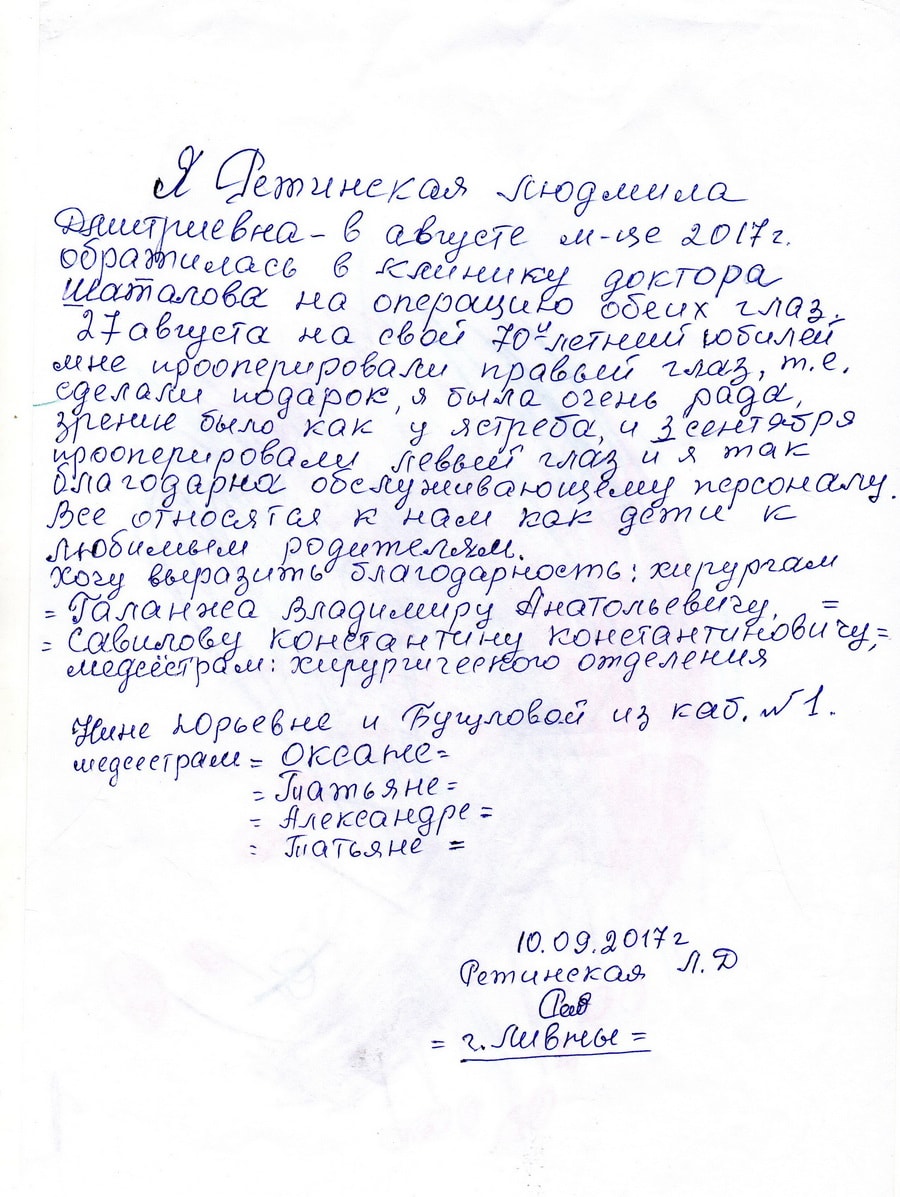 Я Ретинская Людмила
Дмитриевна - в августе м-це 2017г.
обратилась в клинику доктора
Шаталова на операцию обеих глаз.
27 августа на свой 70й летний юбилей
мне прооперировали правый глаз, т.е.
сделали подарок, я была очень рада,
зрение было как у ястреба, и 3 сентября
прооперировали левый глаз и я так
благодарна обслуживающему персоналу.
Все относятся к нам как дети к
любимым родителям.
Хочу выразить благодарность: хирургам
= Галанжеа Владимиру Анатольевичу, =
= Савилову Константину Константиновичу, =
медсёстрам: хирургического отделения
Нине Юрьевне и Бугуловой из каб. №1.
медсестрам = Оксане =
= Татьяне =
= Александре =
= Татьяне =
10.09.2017г
Ретинская Л.Д
= г. Ливны =